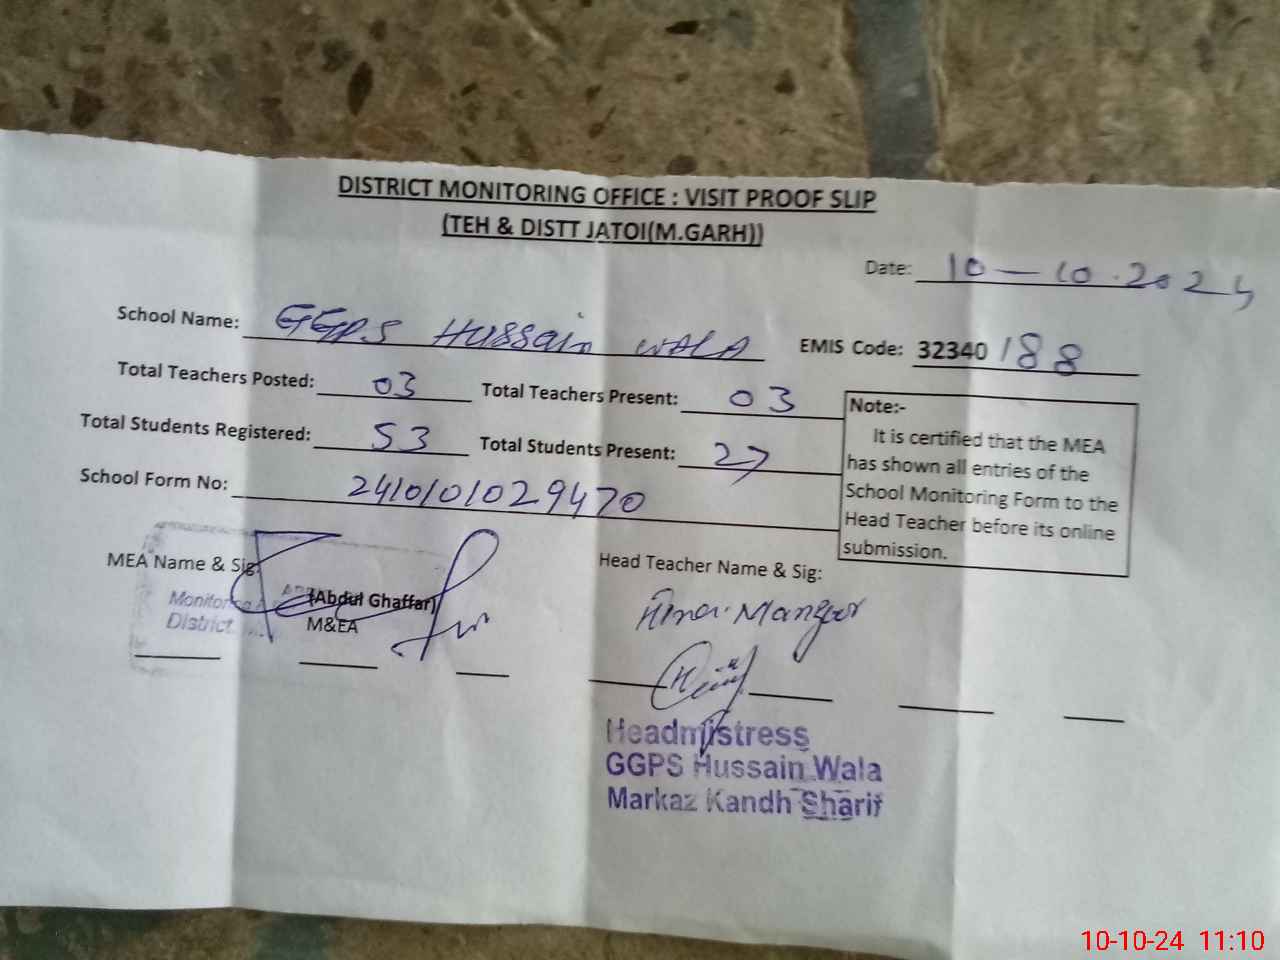 DISTRICT MONITORING OFFICE : VISIT PROOF SLIP
(TEH & DISTT JATOI(M.GARH))
Date: 10-10.2024
School Name: GGPS Hussain WALA EMIS Code: 32340188
Total Teachers Posted: 03 Total Teachers Present: 03
Total Students Registered: 53 Total Students Present: 27
School Form No: 2410101029470
Note:-
It is certified that the MEA
has shown all entries of the
School Monitoring Form to the
Head Teacher before its online
submission.
MEA Name & Sig:
Head Teacher Name & Sig:
(Abdul Ghaffar)
M&EA
District
Headmistress
GGPS Hussain Wala
Markaz Kandh Sharif
10-10-24 11:10